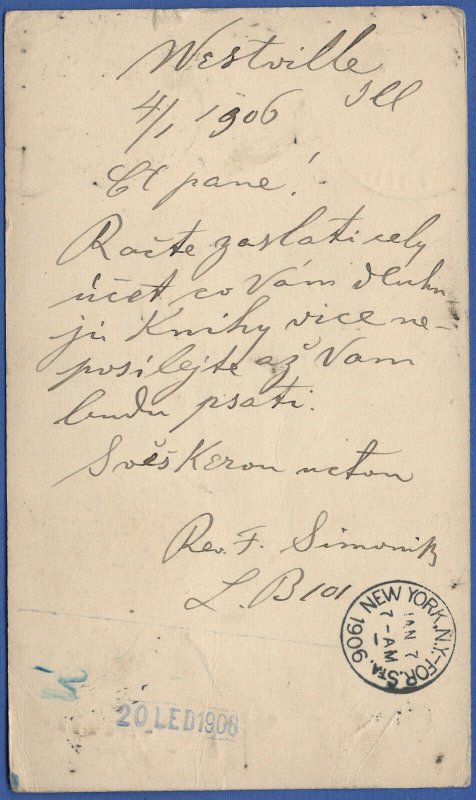 Westville
Ill
4/1 1906
Ct pane!
Račte zaslati cely
účet co Vám dluhu
ji. Knihy vice ne-
posílejte až Vam
budu psati.
S veškerou uctou
Rev. F. Simonik
L. B 101
NEW YORK, N.Y.-FOR. STA.
JAN 7
7-AM
1906
20 LED 1906